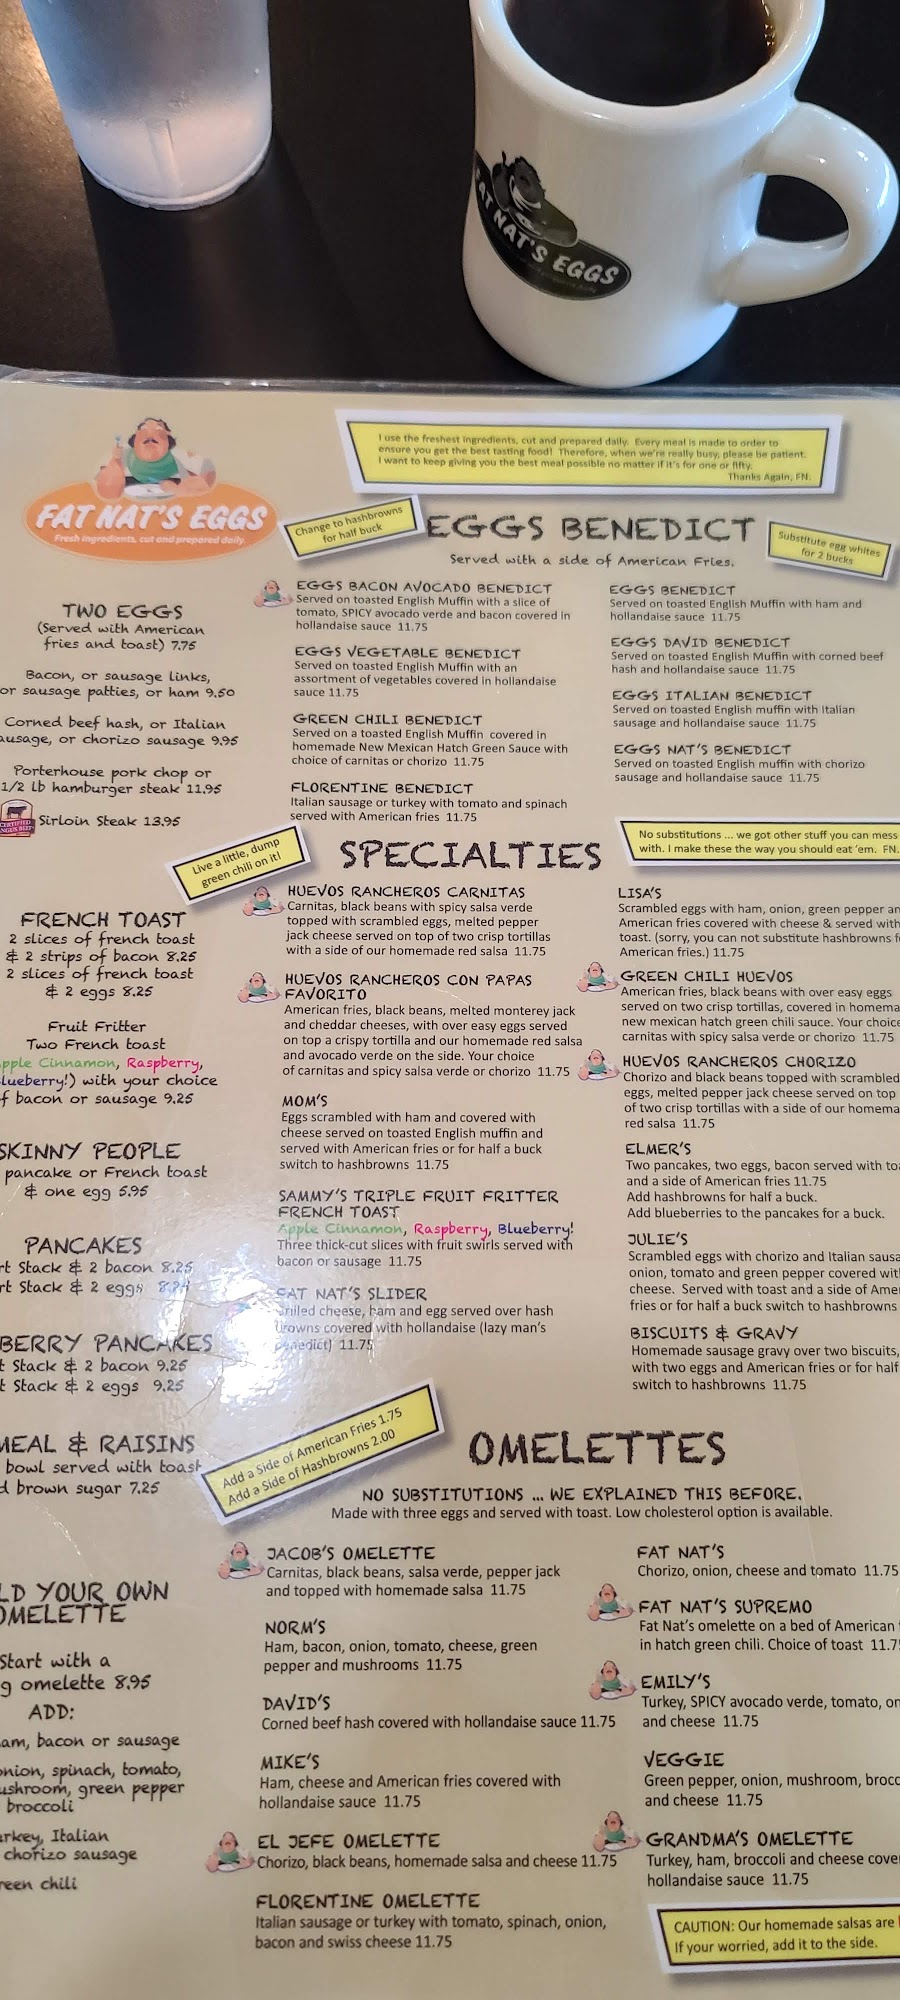 FAT NAT'S EGGS
I use the freshest ingredients, cut and prepared daily. Every meal is made to order to
ensure you get the best tasting food! Therefore, when we're really busy, please be patient.
I want to keep giving you the best meal possible no matter if it's for one or fifty.
Thanks Again, FN.
FAT NAT'S EGGS
Fresh ingredients, cut and prepared daily.
Change to hashbrowns
for half buck
EGGS BENEDICT
Served with a side of American Fries.
Substitute egg whites
for 2 bucks
TWO EGGS
(Served with American
fries and toast) 7.75
Bacon, or sausage links,
or sausage patties, or ham 9.50
Corned beef hash, or Italian
ausage, or chorizo sausage 9.95
Porterhouse pork chop or
1/2 lb hamburger steak 11.95
CERTIFIED
ANGUS BEEF
Sirloin Steak 13.95
EGGS BACON AVOCADO BENEDICT
Served on toasted English Muffin with a slice of
tomato, SPICY avocado verde and bacon covered in
hollandaise sauce 11.75
EGGS VEGETABLE BENEDICT
Served on toasted English Muffin with an
assortment of vegetables covered in hollandaise
sauce 11.75
GREEN CHILI BENEDICT
Served on a toasted English Muffin covered in
homemade New Mexican Hatch Green Sauce with
choice of carnitas or chorizo 11.75
FLORENTINE BENEDICT
Italian sausage or turkey with tomato and spinach
served with American fries 11.75
EGGS BENEDICT
Served on toasted English Muffin with ham and
hollandaise sauce 11.75
EGGS DAVID BENEDICT
Served on toasted English Muffin with corned beef
hash and hollandaise sauce 11.75
EGGS ITALIAN BENEDICT
Served on toasted English muffin with Italian
sausage and hollandaise sauce 11.75
EGGS NAT'S BENEDICT
Served on toasted English muffin with chorizo
sausage and hollandaise sauce 11.75
Live a little, dump
green chili on it!
SPECIALTIES
No substitutions ... we got other stuff you can mess
with. I make these the way you should eat 'em. FN.
FRENCH TOAST
2 slices of french toast
& 2 strips of bacon 8.25
2 slices of french toast
& 2 eggs 8.25
Fruit Fritter
Two French toast
pple Cinnamon, Raspberry,
lueberry!) with your choice
f bacon or sausage 9.25
SKINNY PEOPLE
pancake or French toast
& one egg 5.95
PANCAKES
rt Stack & 2 bacon 8.25
rt Stack & 2 eggs
BERRY PANCAKES
t Stack & 2 bacon 9.25
t Stack & 2 eggs 9.25
MEAL & RAISINS
bowl served with toast
d brown sugar 7.25
HUEVOS RANCHEROS CARNITAS
Carnitas, black beans with spicy salsa verde
topped with scrambled eggs, melted pepper
jack cheese served on top of two crisp tortillas
with a side of our homemade red salsa 11.75
HUEVOS RANCHEROS CON PAPAS
FAVORITO
American fries, black beans, melted monterey jack
and cheddar cheeses, with over easy eggs served
on top a crispy tortilla and our homemade red salsa
and avocado verde on the side. Your choice
of carnitas and spicy salsa verde or chorizo 11.75
MOM'S
Eggs scrambled with ham and covered with
cheese served on toasted English muffin and
served with American fries or for half a buck
switch to hashbrowns 11.75
SAMMY'S TRIPLE FRUIT FRITTER
FRENCH TOAST
Apple Cinnamon, Raspberry, Blueberry!
Three thick-cut slices with fruit swirls served with
bacon or sausage 11.75
FAT NAT'S SLIDER
Grilled cheese, ham and egg served over hash
browns covered with hollandaise (lazy man's
benedict) 11.75
LISA'S
Scrambled eggs with ham, onion, green pepper an
American fries covered with cheese & served with
toast. (sorry, you can not substitute hashbrowns f
American fries.) 11.75
GREEN CHILI HUEVOS
American fries, black beans with over easy eggs
served on two crisp tortillas, covered in homema
new mexican hatch green chili sauce. Your choice
carnitas with spicy salsa verde or chorizo 11.75
HUEVOS RANCHEROS CHORIZO
Chorizo and black beans topped with scrambled
eggs, melted pepper jack cheese served on top
of two crisp tortillas with a side of our homema
red salsa 11.75
ELMER'S
Two pancakes, two eggs, bacon served with to
and a side of American fries 11.75
Add hashbrowns for half a buck.
Add blueberries to the pancakes for a buck.
JULIE'S
Scrambled eggs with chorizo and Italian sausa
onion, tomato and green pepper covered wit
cheese. Served with toast and a side of Ame
fries or for half a buck switch to hashbrowns
BISCUITS & GRAVY
Homemade sausage gravy over two biscuits,
with two eggs and American fries or for half
switch to hashbrowns 11.75
Add a Side of American Fries 1.75
Add a Side of Hashbrowns 2.00
OMELETTES
NO SUBSTITUTIONS ... WE EXPLAINED THIS BEFORE.
Made with three eggs and served with toast. Low cholesterol option is available.
LD YOUR OWN
OMELETTE
Start with a
g omelette 8.95
ADD:
am, bacon or sausage
onion, spinach, tomato,
ushroom, green pepper
broccoli
urkey, Italian
chorizo sausage
reen chili
JACOB'S OMELETTE
Carnitas, black beans, salsa verde, pepper jack
and topped with homemade salsa 11.75
NORM'S
Ham, bacon, onion, tomato, cheese, green
pepper and mushrooms 11.75
DAVID'S
Corned beef hash covered with hollandaise sauce 11.75
MIKE'S
Ham, cheese and American fries covered with
hollandaise sauce 11.75
EL JEFE OMELETTE
Chorizo, black beans, homemade salsa and cheese 11.75
FLORENTINE OMELETTE
Italian sausage or turkey with tomato, spinach, onion,
bacon and swiss cheese 11.75
FAT NAT'S
Chorizo, onion, cheese and tomato 11.75
FAT NAT'S SUPREMO
Fat Nat's omelette on a bed of American
in hatch green chili. Choice of toast 11.7
EMILY'S
Turkey, SPICY avocado verde, tomato, on
and cheese 11.75
VEGGIE
Green pepper, onion, mushroom, brocc
and cheese 11.75
GRANDMA'S OMELETTE
Turkey, ham, broccoli and cheese cove
hollandaise sauce 11.75
CAUTION: Our homemade salsas are
If your worried, add it to the side.